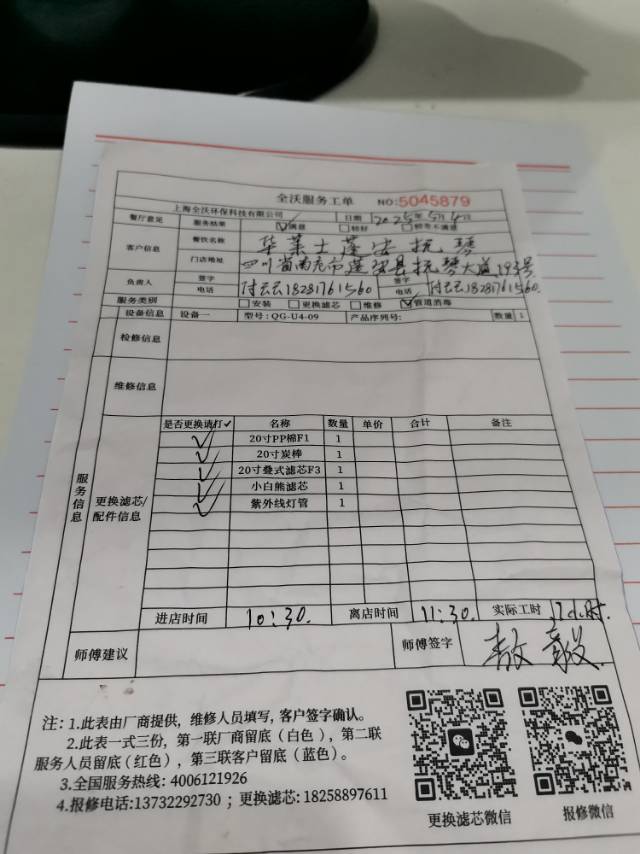 全沃服务工单 NO:5045879
上海全沃环保科技有限公司 日期 2025年5月4日
餐厅意见 服务结果 ☑满意 □较好 □较差不满意
客户信息 餐饮名称 华莱士蓬安抚琴
门店地址 四川省南充市蓬安县抚琴大道193号
负责人 签字 电话 付云云18281761560 签字 电话 付云云18281761560.
服务类别 □安装 □更换滤芯 □维修 ☑管道消毒
设备信息 设备一 型号:QG-U4-09 产品序列号: 数量 1
检修信息
维修信息
服务信息
更换滤芯/配件信息
是否更换请打✓ 名称 数量 单价 合计 备注
✓ 20寸PP棉F1 1
✓ 20寸炭棒 1
✓ 20寸叠式滤芯F3 1
✓ 小白熊滤芯 1
✓ 紫外线灯管 1
进店时间 10:30. 离店时间 11:30. 实际工时 1小时.
师傅建议 师傅签字
注:1.此表由厂商提供,维修人员填写,客户签字确认。
2.此表一式三份,第一联厂商留底(白色),第二联
服务人员留底(红色),第三联客户留底(蓝色)。
3.全国服务热线:4006121926
4.报修电话:13732292730;更换滤芯:18258897611
更换滤芯微信 报修微信